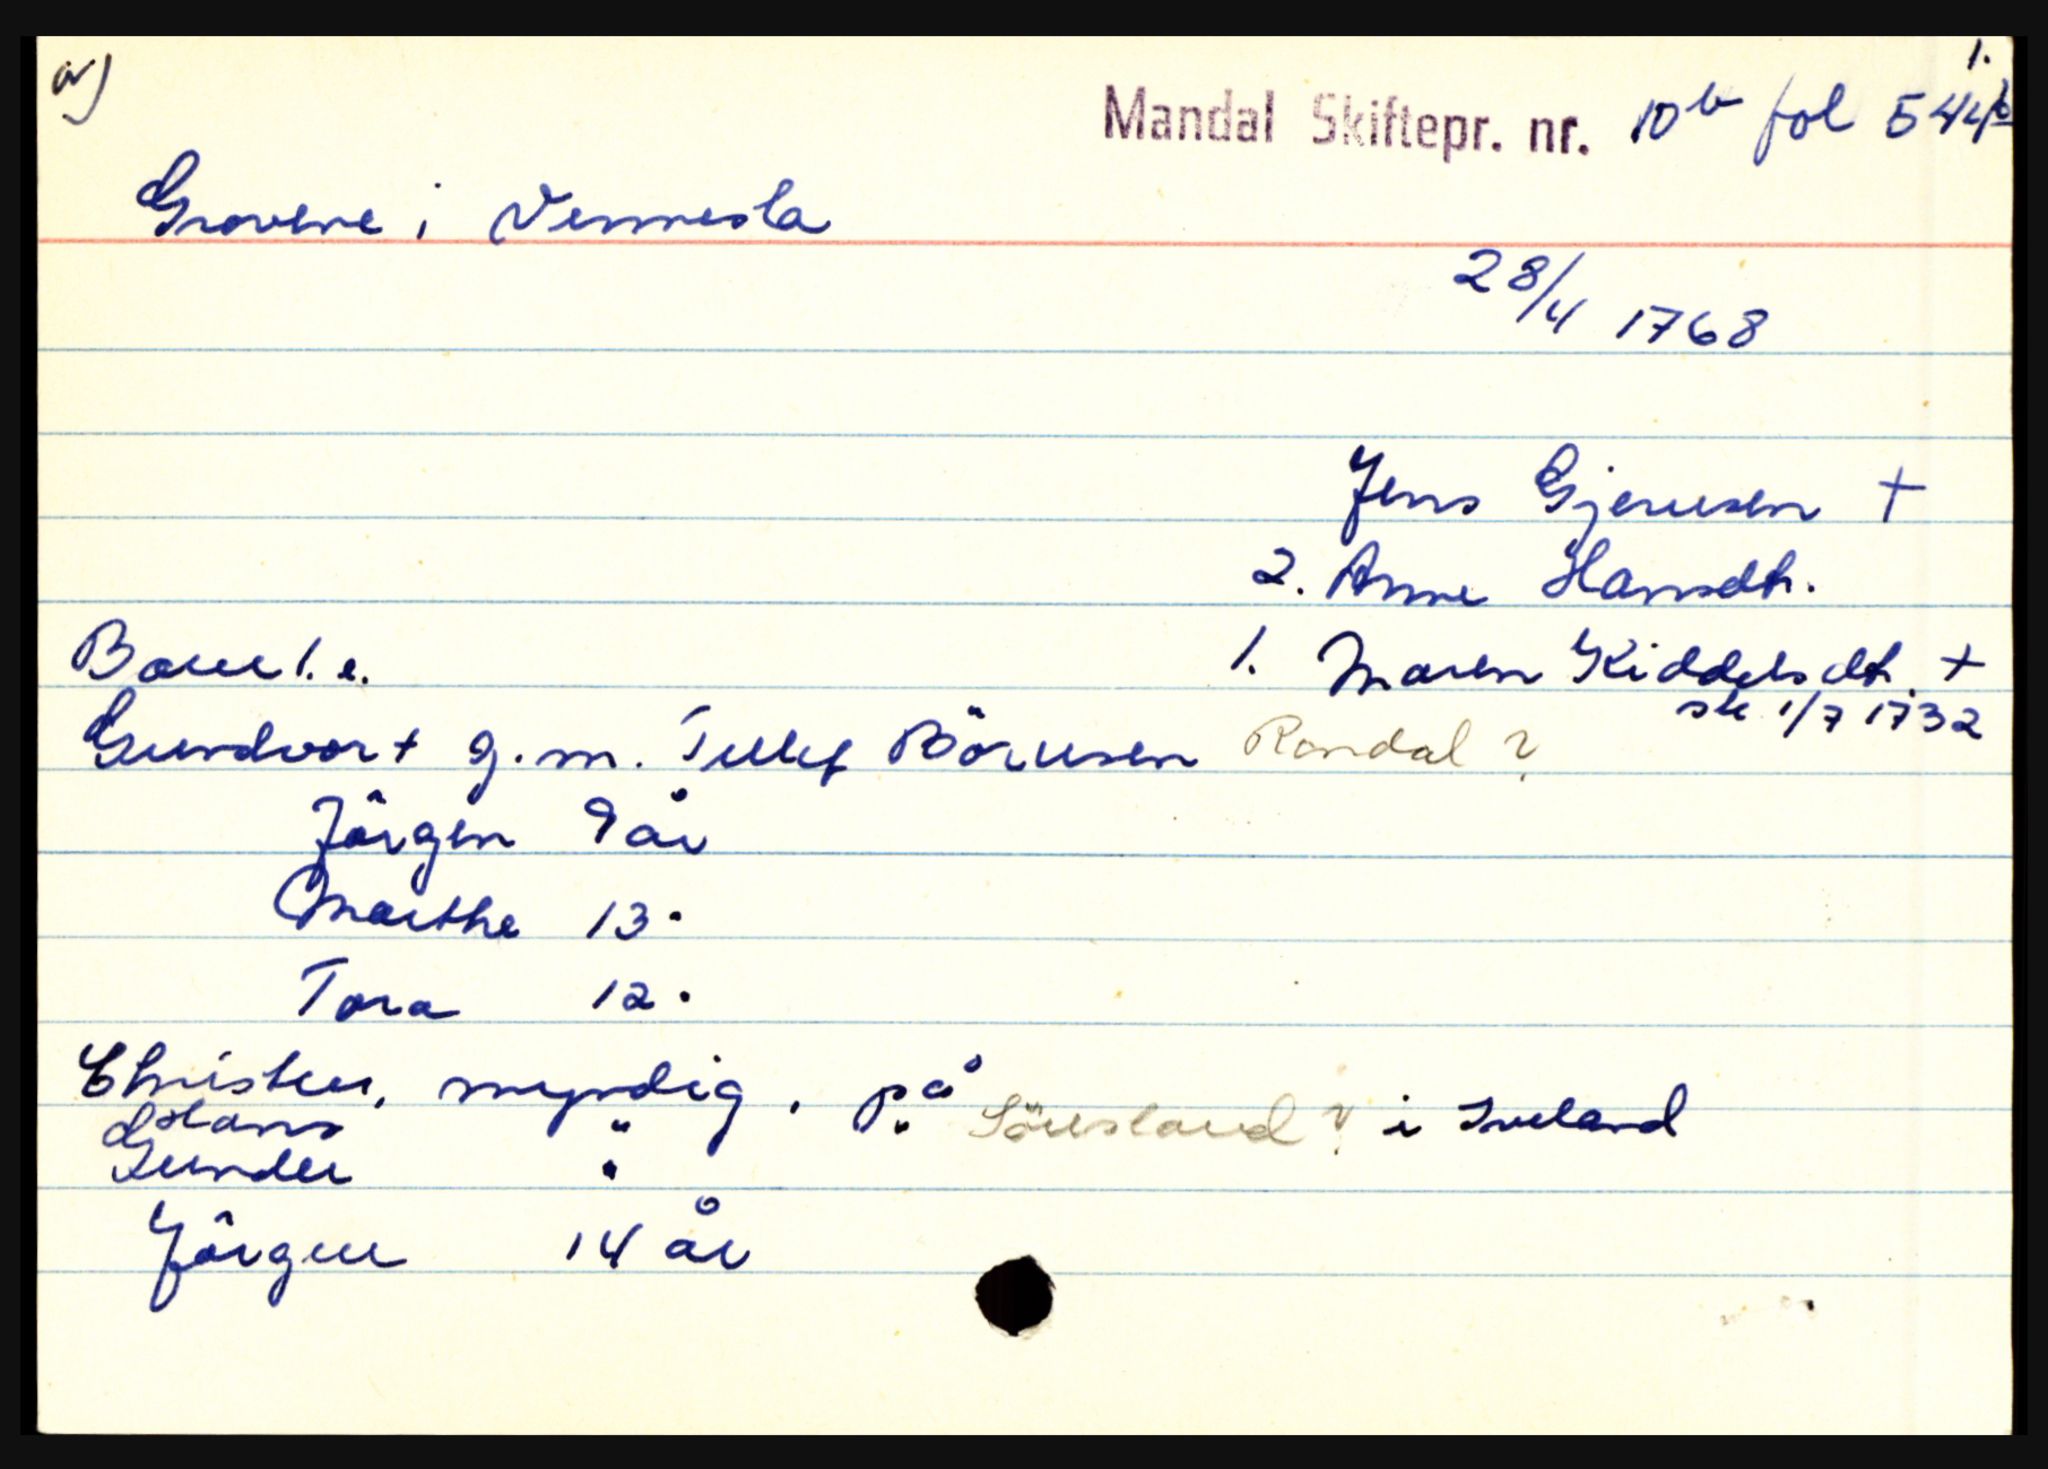 a)
1.
Mandal Skiftepr. nr. 10 b fol 544b
Grovene i Vennesla
28/4 1768
Jens Gjerusen +
2. Anne Hansdtr.
Barn 1. e.
1. Maren Kiddelsdtr. +
sk 1/7 1732
Gundvor + g.m. Tellef Börusen Rondal ?
Jörgen 9 år
Marthe 13 "
Tora 12 "
Christen, myndig, på
Hans " " i Iveland
Gunder "
Jörgen 14 år